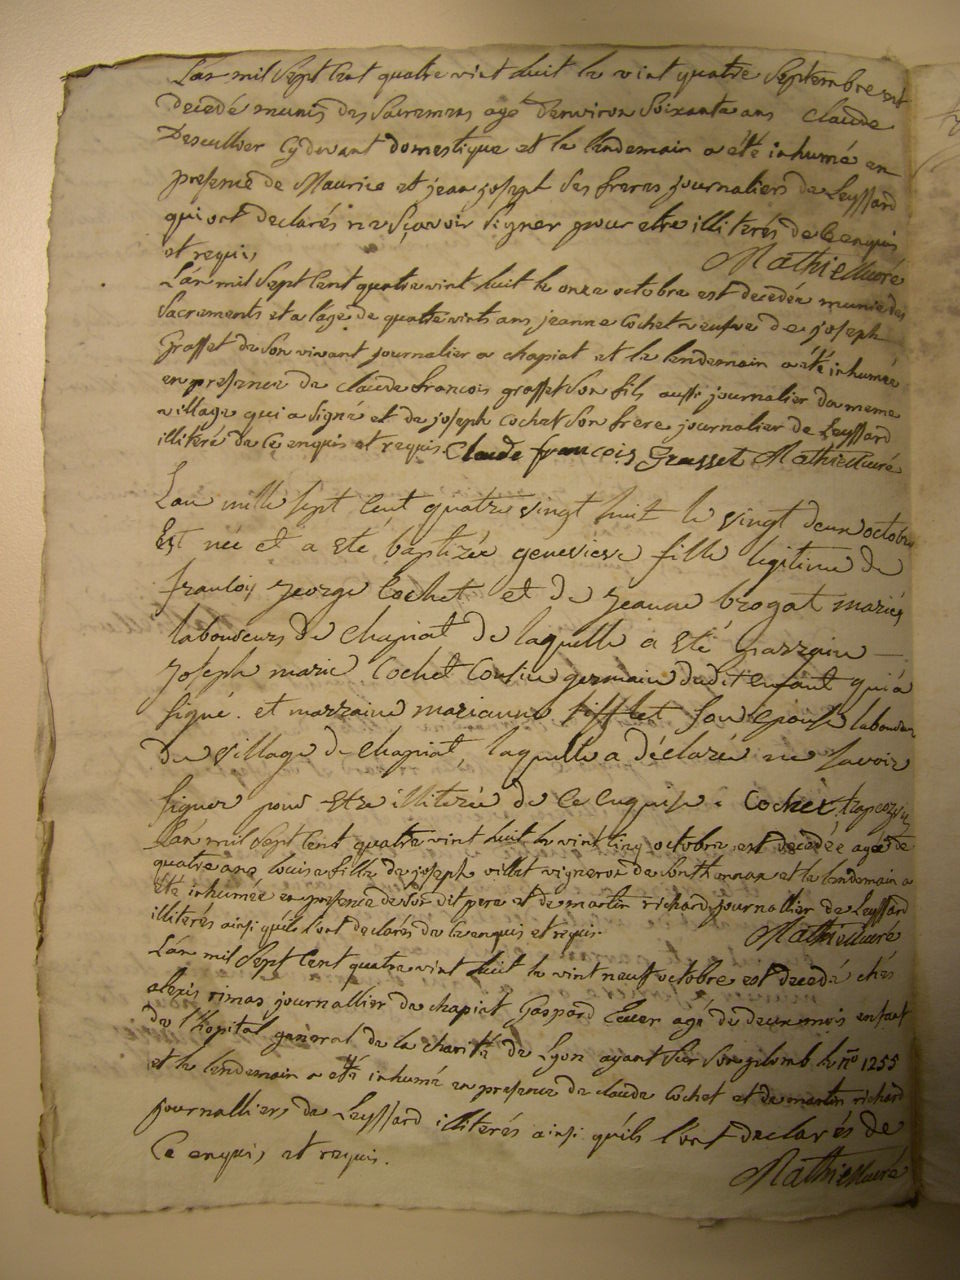 L'an mil sept cent quatre vint huit le vint quatre septembre est
decedé munis des sacremens agé d'environ soixante ans Claude
cy devant domestique et le lendemain a été inhumé en
presence de Maurice et jean joseph ses freres journaliers de Leyssard
qui ont declarés ne sçavoir signer pour etre illiterés de ce enquis
et requis, Mathieu curé
L'an mil sept cent quatre vint huit le onze octobre est decedée munie des
sacrements et a l'age de quatre vints ans jeanne Cochet veufve de joseph
Grasset de son vivant journalier a chapiat et le lendemain a été inhumée
en presence de claude francois grasset son fils aussi journalier du meme
village qui a signé et de joseph cochet son frere journalier de Leyssard
illiteré de ce enquis et requis. Claude françois Grasset Mathieu curé
L'an mille sept cent quatre vingt huit le vingt deux octobre
Est née et a eté baptizée genevieve fille legitime de
françois george Cochet et de jeanne brogat mariés
laboureurs de chapiat de laquelle a eté parrain
joseph marie Cochet Cousin germain dudit enfant qui a
signé. et marraine marianne tifflet son epouse laboureur
du village de chapiat, laquelle a déclaré ne savoir
signer pour etre illiterée de ce enquise. Cochet
L'an mil sept cent quatre vint huit le vint cinq octobre est decedée agée de
quatre ans louise fille de joseph villet vigneron de sonthonnax et le lendemain a
été inhumée en presence de son dit pere et de martin richard journallier de Leyssard
illiterés ainsi qu'ils l'ont declarés de ce enquis et requis. Mathieu curé
L'an mil sept cent quatre vint huit le vint neuf octobre est decedé chés
alexis rimas journallier de chapiat Gaspard agé de deux mois enfant
de l'Hopital general de la charité de Lyon ayant sur son plomb le n° 1255
et le lendemain a été inhumé en presence de claude Cochet et de martin richard
journalliers de Leyssard illiterés ainsi qu'ils l'ont declarés de
Ce enquis et requis. Mathieu curé